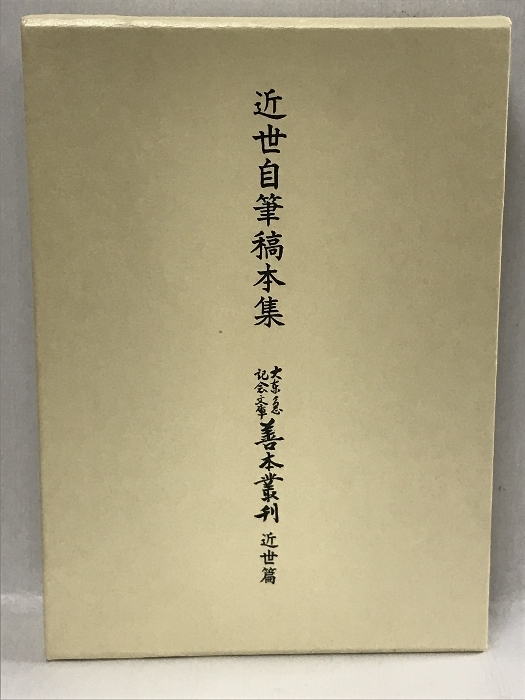 近世自筆稿本集
大東急
記念文庫
善本叢刊
近世篇